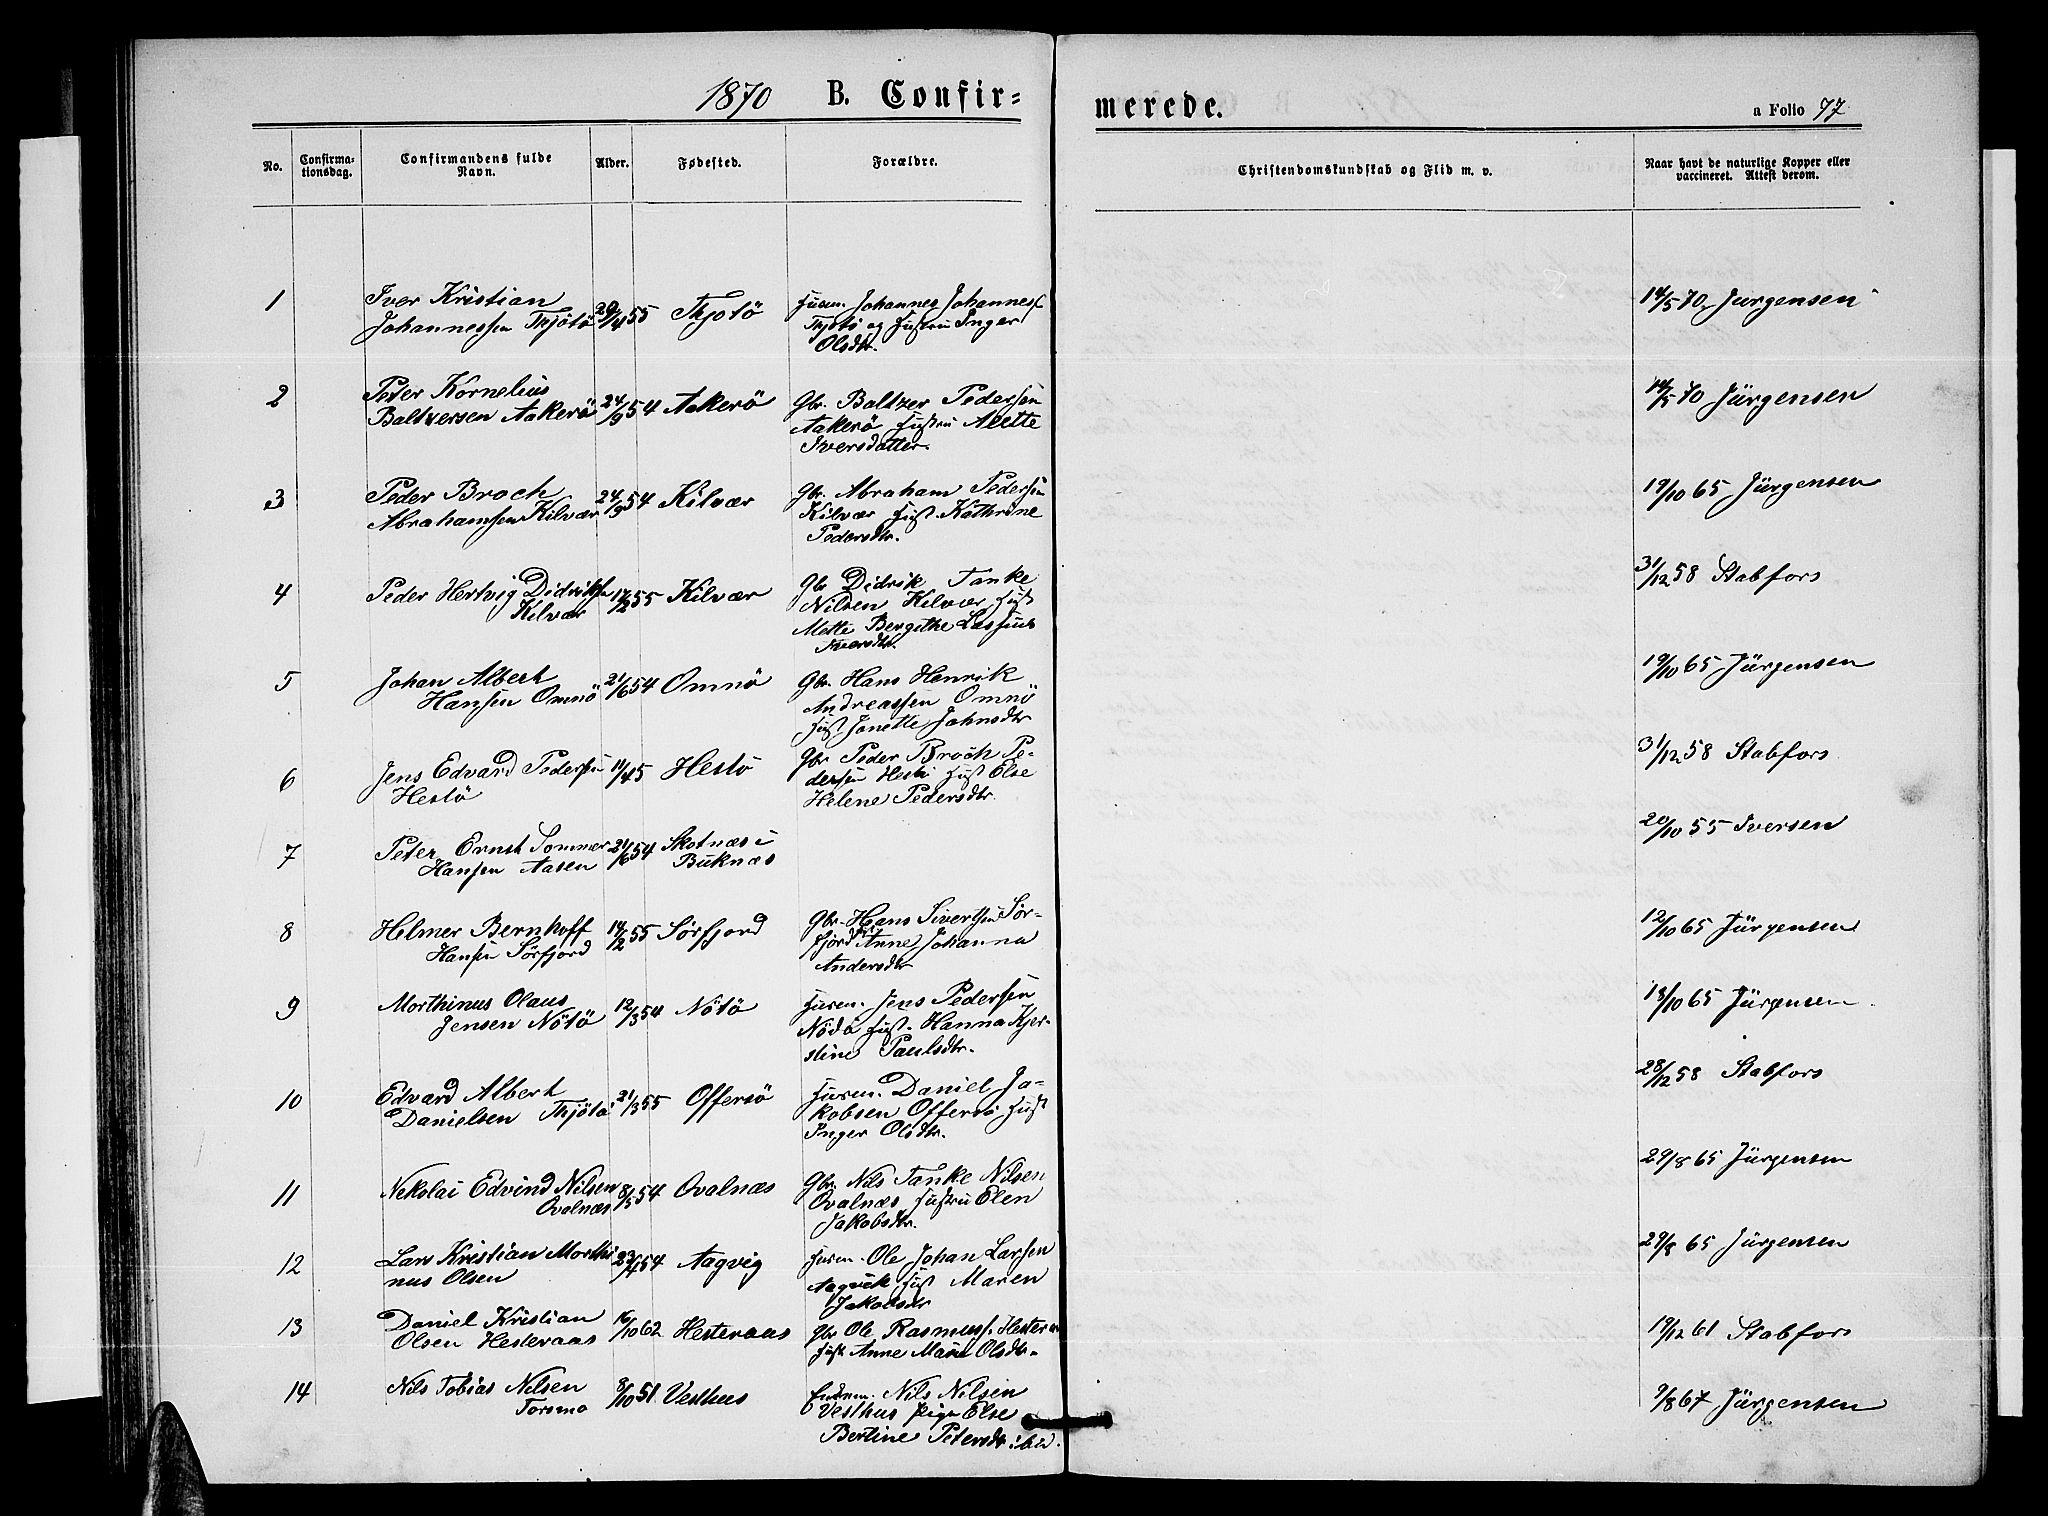 1870 B. Confir=
merede.
a Folio 77
No.
Confirma=
tionsdag.
Confirmandens fulde
Navn.
Alder.
Fødested.
Forældre.
Christendomskundskab og Flid m. v.
Naar havt de naturlige Kopper eller
vaccineret. Attest derom.
1 Iver Kristian
Johannessen Thjötö 29/4 55 Thjotö
Husm. Johannes Johanness.
Thjötö og Hustru Inger
Olsdtr.
14/5 70 Jurgensen
2 Peter Kornelius
Baltzersen Aakerö 24/9 54 Aakerö
Gbr. Baltzer Pedersen
Aakerö Hustru Alette
Iversdatter.
14/5 70 Jürgensen
3 Peder Broch
Abrahamsen Kilvær 24/9 54 Kilvær
Gbr. Abraham Pedersen
Kilvær Hust. Kathrine
Pedersdtr.
19/10 65 Jürgensen
4 Peder Hertvig Didriks.
Kilvær 17/2 55 Kilvær
Gbr Didrik Tanke
Nilsen Kilvær Hust
Mette Bergithe
Iversdtr.
31/12 58 Stabfors
5 Johan Albert
Hansen Omnö 21/6 54 Omnö
Gbr. Hans Henrik
Andreassen Omnö
Hust Janette Johnsdtr
19/10 65 Jürgensen
6 Jens Edvard Pedersen
Hestö 11/4 5 Hestö
Gbr Peder Broch Pe-
dersen Hestö Hust Else
Helene Pedersdtr.
31/12 58 Stabfors
7 Peter Ernst Sommer
Hansen Aasen 21/6 54 Skotnæs i
Buknæs
20/10 55 Iversen
8 Helmer Bernhoff
Hansen Sörfjord 14/2 55 Sörfjord
Gbr. Hans Sivertsen Sör-
fjord Anne Johanna
Andersdtr
12/10 65 Jürgensen
9 Morthinus Olaus
Jensen Nötö 12/3 54 Nötö
Husm. Jens Pedersen
Nödö Hust. Hanna Kjer-
stine Paulsdtr.
18/10 65 Jürgensen
10 Edvard Albert
Danielsen Thjötö 21/3 55 Offersö
Husm. Daniel Ja-
kobsen Offersö Hust
Inger Olsdtr.
28/12 58 Stabfors
11 Nekolai Edvind Nilsen
Ovalnæs 8/5 54 Ovalnæs
Gbr. Nils Tanke Nilsen
Ovalnæs Hustru Elen
Jakobsdtr.
29/8 65 Jürgensen
12 Lars Kristian Morthi
nus Olsen 23/4 54 Aagvig
Husm. Ole Johan Larsen
Aagvik Hust Maren
Jakobsdtr
29/8 65 Jürgensen
13 Daniel Kristian
Olsen Hesteraas 16/10 62 Hesteraas
Gbr Ole Rasmuss. Hester
Hust Anne Marie Olsdtr.
19/12 61 Stabfors
14 Nils Tobias Nilsen
Torsmo 8/10 51 Vesthus
Nils Nilsen
Vesthus pige Else
Bertine Petersdtr ibd.
9/8 67 Jürgensen